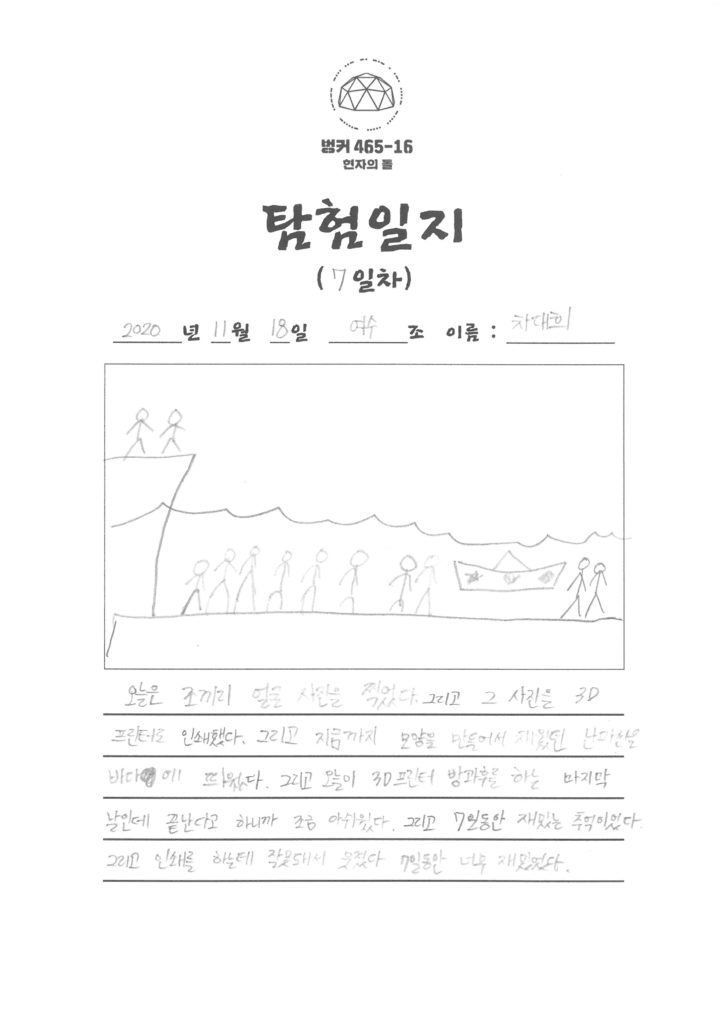 벙커 465-16
현자의 돌
탐험일지
(7일차)
2020 년 11월 18일 여수 조 이름 : 차대희
오늘은 조끼리 얼굴 사진을 찍었다. 그리고 그 사진을 3D
프린터로 인쇄했다. 그리고 지금까지 모양을 만들어서
바다에 띄웠다. 그리고 오늘이 3D프린터 방과후를 하는 마지막
날인데 끝난다고 하니까 조금 아쉬웠다. 그리고 7일동안 재밌는 추억이었다.
그리고 인쇄를 하는데 잘못돼서 웃겼다 7일동안 너무 재밌었다.